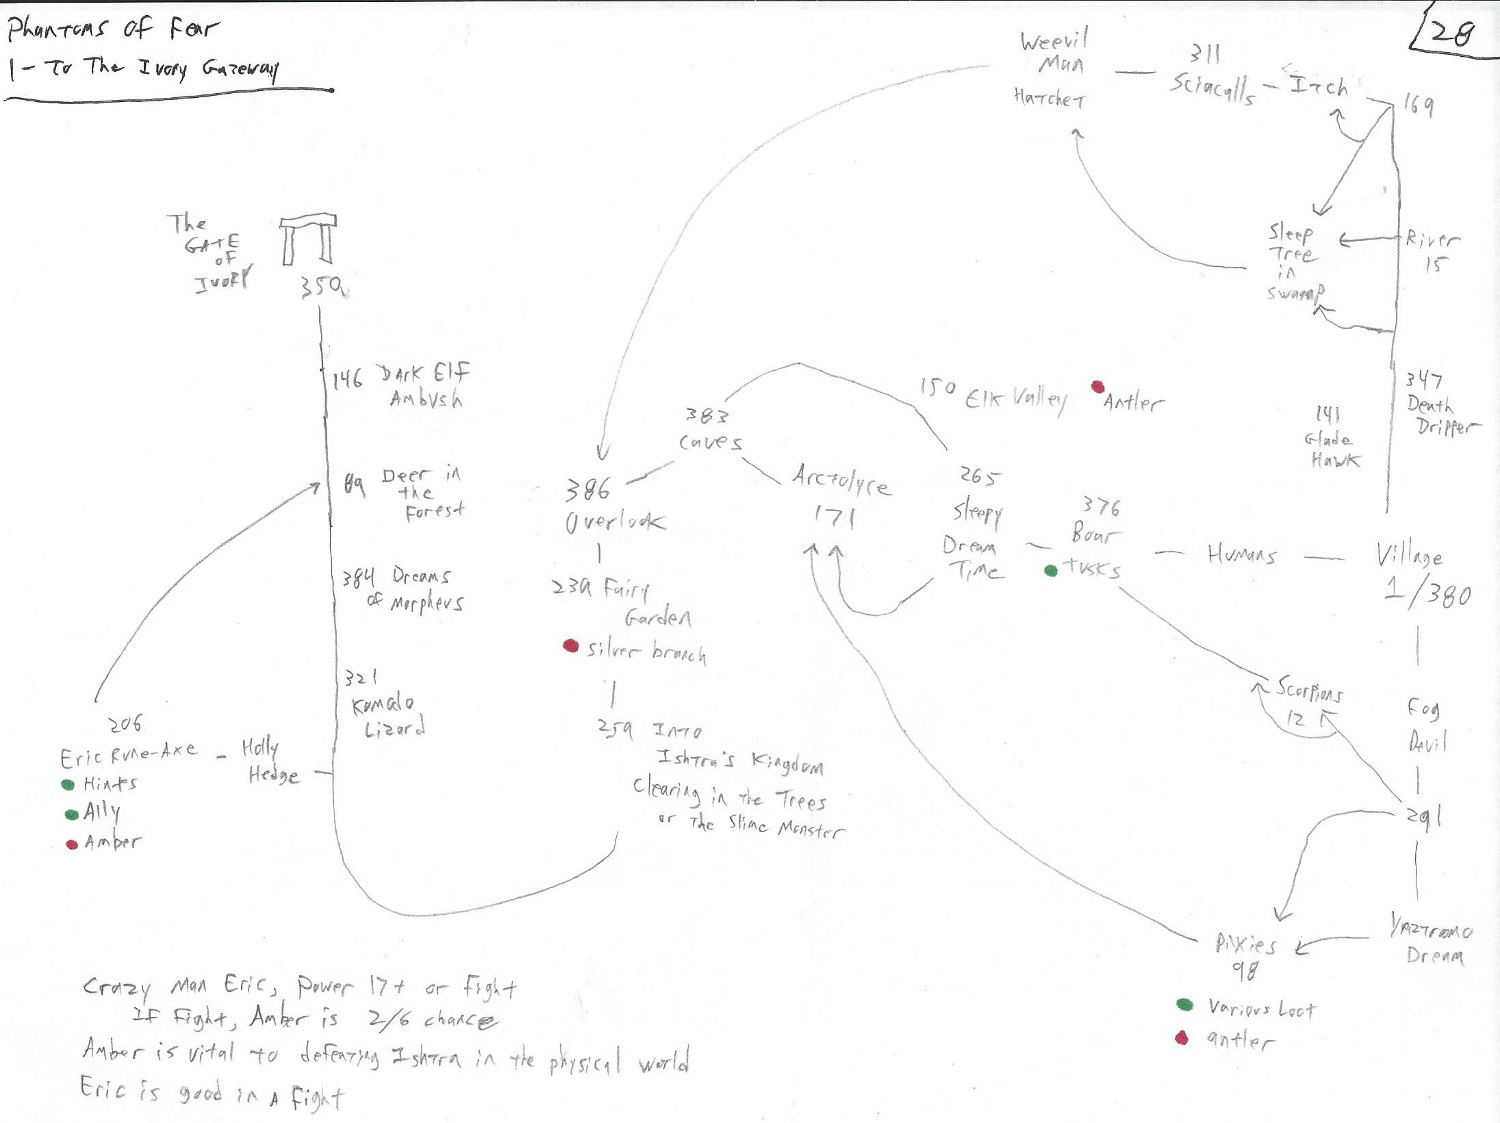 Phantoms of Fear
1 - To The Ivory Gateway
28
Weevil
Man
Hatchet
311
Sciacalls
Itch
169
The
GATE
OF
IVORY
359
Sleep
Tree
in
Swamp
River
15
146 Dark Elf
Ambush
383
Caves
150 Elk Valley
Antler
347
Death
Dripper
141
Glade
Hawk
89 Deer in
the
Forest
386
Overlook
Arctolyce
171
265
Sleepy
Dream
Time
376
Boar
Tusks
Humans
Village
1/380
384 Dreams
of Morpheus
239 Fairy
Garden
silver branch
321
Komodo
Lizard
Scorpions
12
Fog
Devil
206
Eric Rune-Axe
Hints
Ally
Amber
Holly
Hedge
259 Into
Ishtra's Kingdom
Clearing in the Trees
or The Slime Monster
291
Pixies
98
Various Loot
antler
Yaztromo
Dream
Crazy Man Eric, Power 17+ or Fight
IF Fight, Amber is 2/6 chance
Amber is vital to defeating Ishtra in the physical world
Eric is good in A Fight